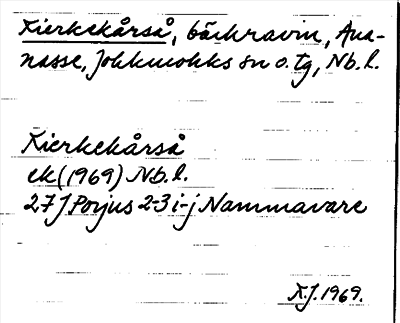 Kierkekårså, bäckravin, Ana-
nasse, Jokkmokks sn o. tg, Nb. l.
Kierkekårså
ek (1969) Nb. l.
27J Porjus 2-3 i-j Nammavare
K.J. 1969.